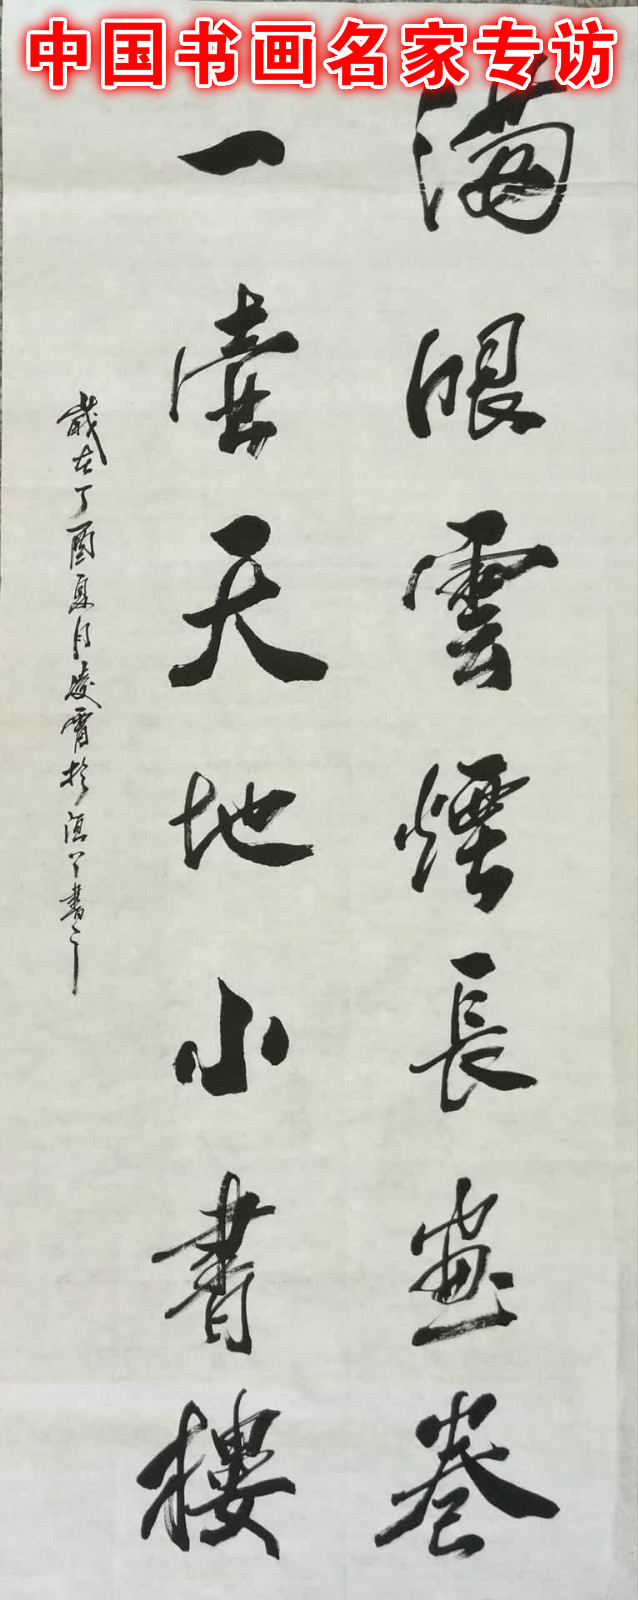 中国书画名家专访
满眼雲煙長畫卷
一壺天地小書樓
歲在丁酉夏月凌霄於
書